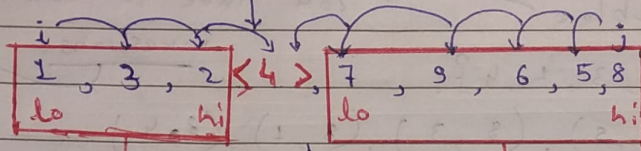 i j
1 , 3 , 2 < 4 > , 7 , 9 , 6 , 5 , 8
lo hi lo hi